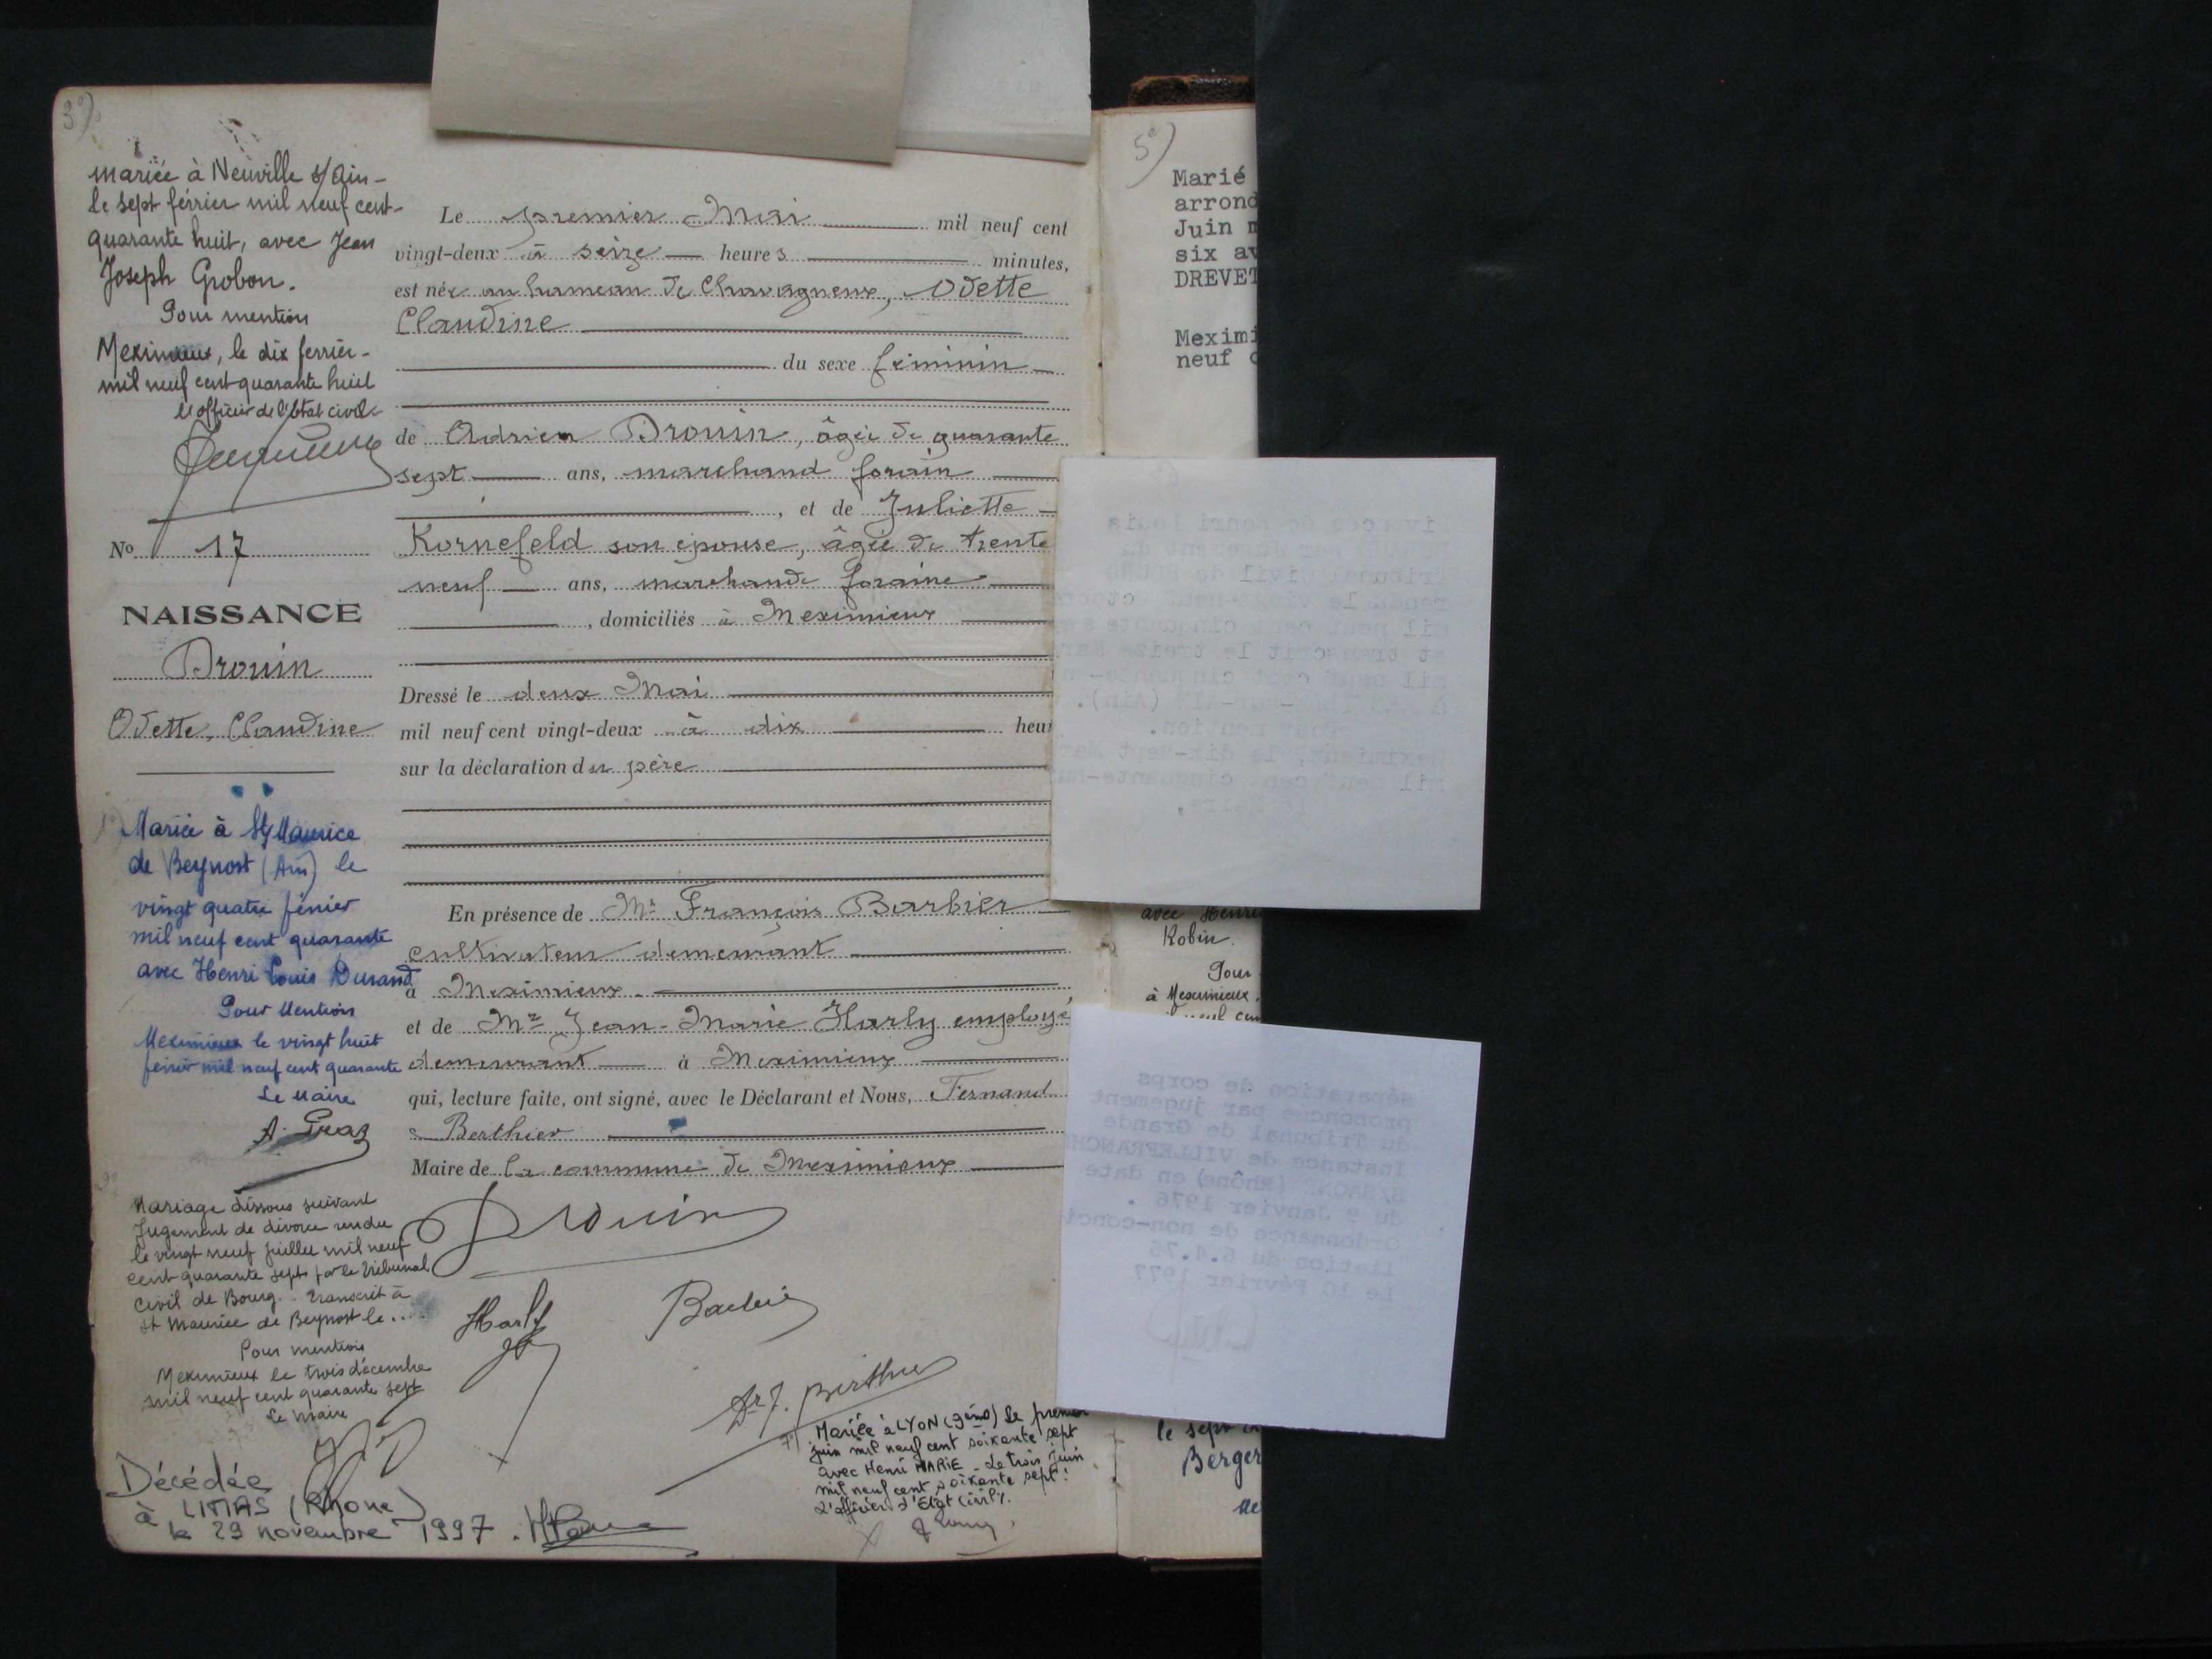 3°)
mariée à Neuville s/Ain -
le sept février mil neuf cent-
quarante huit, avec Jean
Joseph Grobon.
Pour mention
Meximieux, le dix février -
mil neuf cent quarante huit
l'officier de l'état civil
N° 17
NAISSANCE
Drouin
Odette, Claudine
Mariée à St Maurice
de Beynost (Ain) le
vingt quatre février
mil neuf cent quarante
avec Henri Louis Durand
Pour Mention
Meximieux le vingt huit
février mil neuf cent quarante
Le Maire
Mariage dissous suivant
Jugement de divorce rendu
le vingt neuf juillet mil neuf
cent quarante sept par le Tribunal
Civil de Bourg. Transcrit à
St Maurice de Beynost le ....
Pour mention
Meximieux le trois décembre
mil neuf cent quarante sept
Le Maire
Décédée
à LIMAS (Rhône)
le 29 novembre 1997.
Le premier Mai mil neuf cent
vingt-deux à seize heures minutes,
est née au hameau de Chavagneux, Odette
Claudine
du sexe féminin
de Adrien Drouin, âgée de quarante
sept ans, marchand forain
, et de Juliette
Kornefeld son épouse, âgée de trente
neuf ans, marchande foraine
, domiciliés à Meximieux
Dressé le deux Mai
mil neuf cent vingt-deux à dix heu
sur la déclaration du père
En présence de Mr François Barbier
cultivateur demeurant
à Meximieux
et de Mr Jean-Marie Harly employé
demeurant à Meximieux
qui, lecture faite, ont signé, avec le Déclarant et Nous, Fernand
Berthier
Maire de la commune de Meximieux
Drouin
Harly
Barbier
Dr F. Berthier
Mariée à LYON (9ème) le premier
juin mil neuf cent soixante sept
avec Henri MARIE - Le trois juin
mil neuf cent soixante sept.
L'officier d'Etat Civil.
5°)
Marié
arrond
Juin m
six av
DREVET
Meximi
neuf c
Séparation de corps
prononcée par jugement
du Tribunal de Grande
Instance de VILLEFRANCH
(Rhône) en date
du 9 Janvier 1976 .
Ordonnance de non-conci-
liation du 6.4.75
Le 10 Février 1977
avec Henri
Robin.
Pour
à Meximieux
le sept
Berger